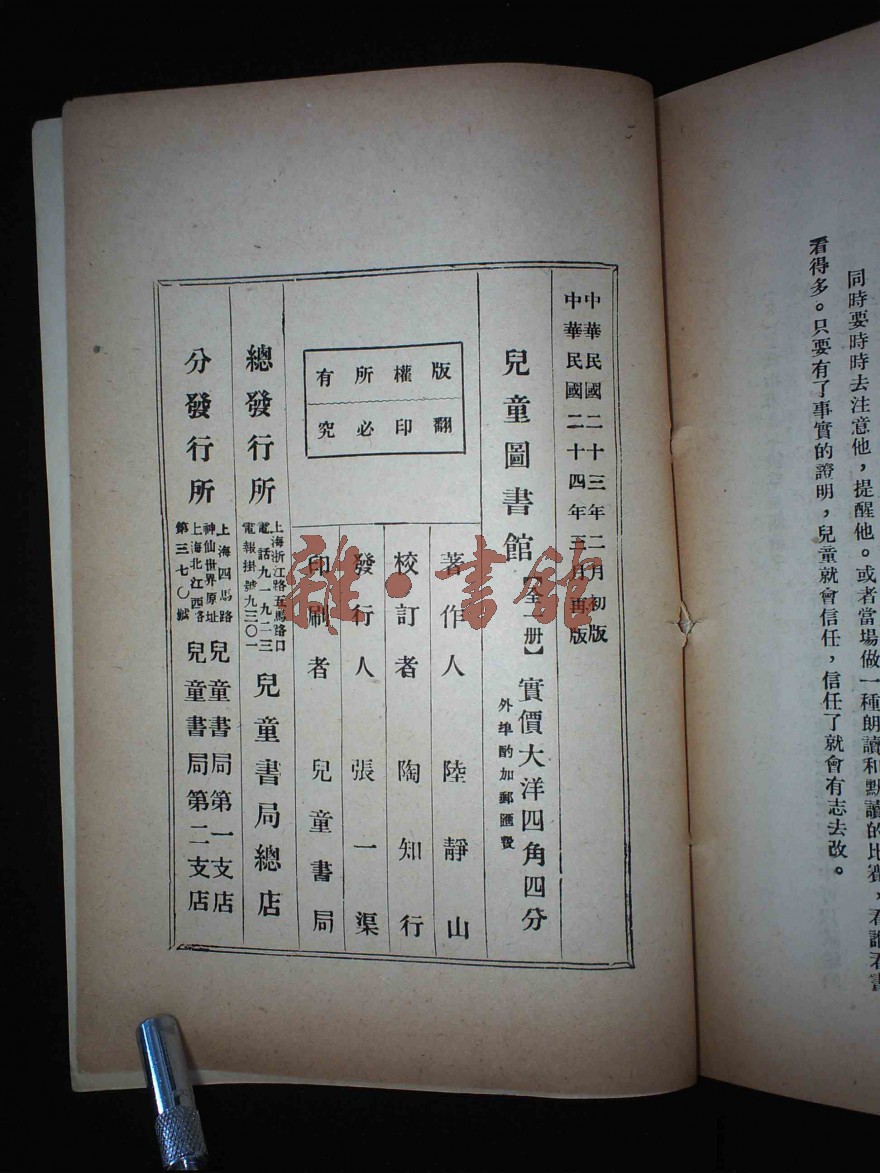 同時要時時去注意他，提醒他。或者當場做一種朗讀和默讀的比賽，看誰看書
看得多。只要有了事實的證明，兒童就會信任，信任了就會有志去改。
中華民國二十三年二月初版
中華民國二十四年五月再版
兒童圖書館【全一册】實價大洋四角四分
外埠酌加郵匯費
版權所有
翻印必究
著作人 陸靜山
校訂者 陶知行
發行人 張一渠
印刷者 兒童書局
總發行所
上海浙江路五馬路口
電話九一九二三
電報掛號九三〇一
兒童書局總店
分發行所
上海四馬路
神仙世界原址
兒童書局第一支店
上海北江西路
第三七〇號
兒童書局第二支店
雜·書館